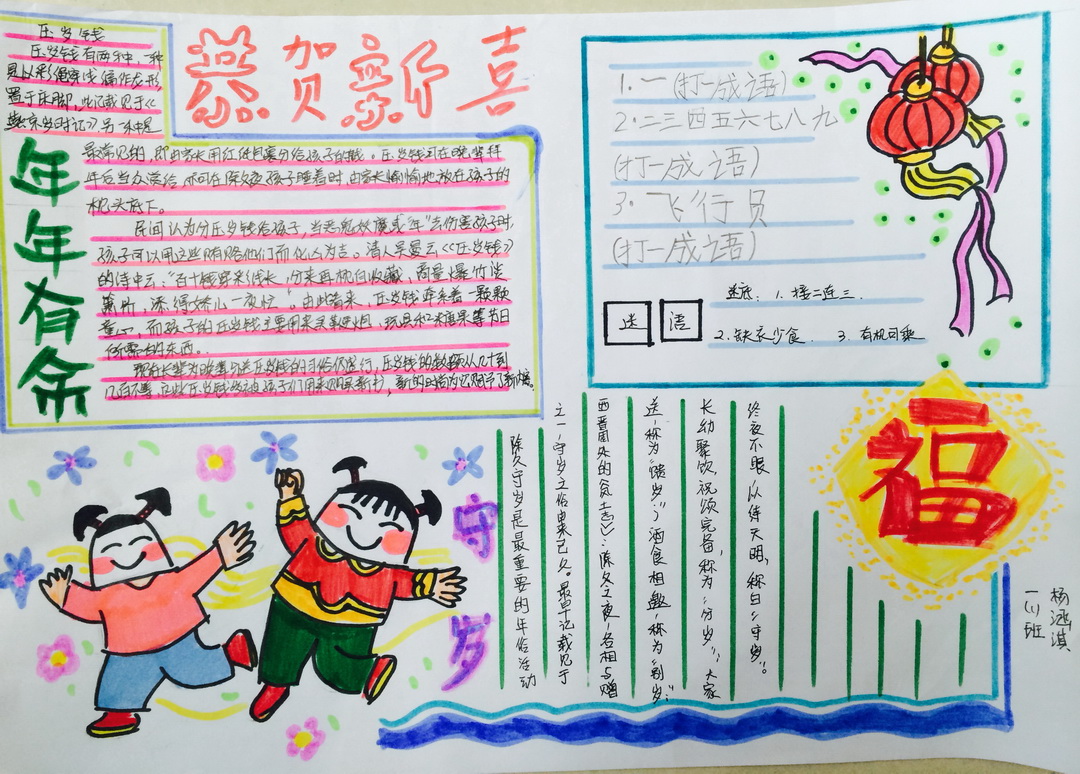 恭贺新喜
压岁钱
压岁钱有两种,一种
是以彩绳穿线编作龙形,
置于床脚,此记载见于《
燕京岁时记》另一种是
最常见的,即由家长用红纸包裹分给孩子的钱。压岁钱可在晚辈拜
年后当众赏给,亦可在除夕夜孩子睡着时,由家长偷偷地放在孩子的
枕头底下。
民间认为分压岁钱给孩子,当恶鬼妖魔或“年”去伤害孩子时,
孩子可以用这些贿赂他们而化凶为吉。清人吴曼云《压岁钱》
的诗中云:“百十钱穿彩线长,分来再枕自收藏,商量爆竹谈
箫价,添得娇儿一夜忙”,由此看来,压岁钱牵系着一颗颗
童心,而孩子的压岁钱主要用来买鞭炮,玩具和糖果等节日
所需的东西。
现在长辈为晚辈分送压岁钱的习俗仍盛行,压岁钱的数额从几十到
几百不等,这些压岁钱多被孩子们用来购买新书,新的时尚为压岁钱了新
年年有余
1.一(打一成语)
2.二三四五六七八九
(打一成语)
3.飞行员
(打一成语)
迷语
迷底:1.接二连三
2.缺衣少食 3.有机可乘
福
守岁
除夕守岁是最重要的年俗活动
之一,守岁之俗由来已久。最早记载见于
西晋周处的《风土志》:除夕之夜,各相与赠
送,称为“馈岁”;酒食相邀,称为“别岁”;
长幼聚饮,祝颂完备,称为“分岁”;大家
终夜不眠,以待天明,称曰“守岁”。
一(1)班
杨鸿淇